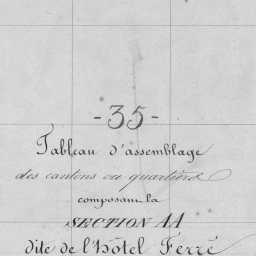 - 35 -
Tableau d'assemblage
des cantons ou quartiers
composant la
SECTION AA
dite de l'hôtel Ferré